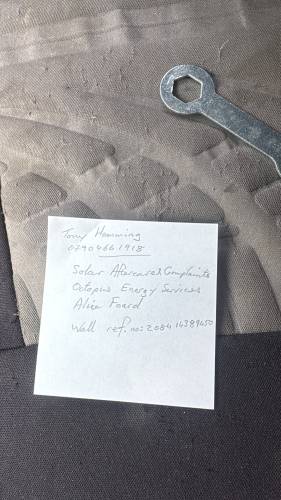 Tony Hemming
0790 466 1918
Solar Aftercare & Complaints
Octopus Energy Services
Alice Foard
Wall ref. no: 2084 14389450